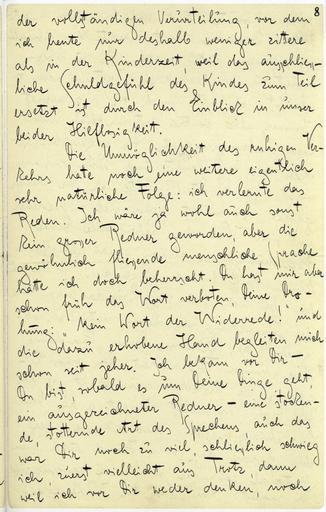 8
der vollständigen Verurteilung, vor dem
ich heute nur deshalb weniger zittere
als in der Kinderzeit, weil das ausschliess-
liche Schuldgefühl des Kindes zum Teil
ersetzt ist durch den Einblick in unser
beider Hilflosigkeit.
Die Unmöglichkeit des ruhigen Ver-
kehrs hatte noch eine weitere eigentlich
sehr natürliche Folge: ich verlernte das
Reden. Ich wäre ja wohl auch sonst
kein grosser Redner geworden, aber die
gewöhnlich fliessende menschliche Sprache
hätte ich doch beherrscht. Du hast mir aber
schon früh das Wort verboten, Deine Dro-
hung: "kein Wort der Widerrede!" und
die dazu erhobene Hand begleiten mich
schon seit jeher. Ich bekam vor Dir –
Du bist, sobald es um Deine Dinge geht,
ein ausgezeichneter Redner – eine stocken-
de, stotternde Art des Sprechens, auch das
war Dir noch zu viel, schliesslich schwieg
ich, zuerst vielleicht aus Trotz, dann
weil ich vor Dir weder denken, noch